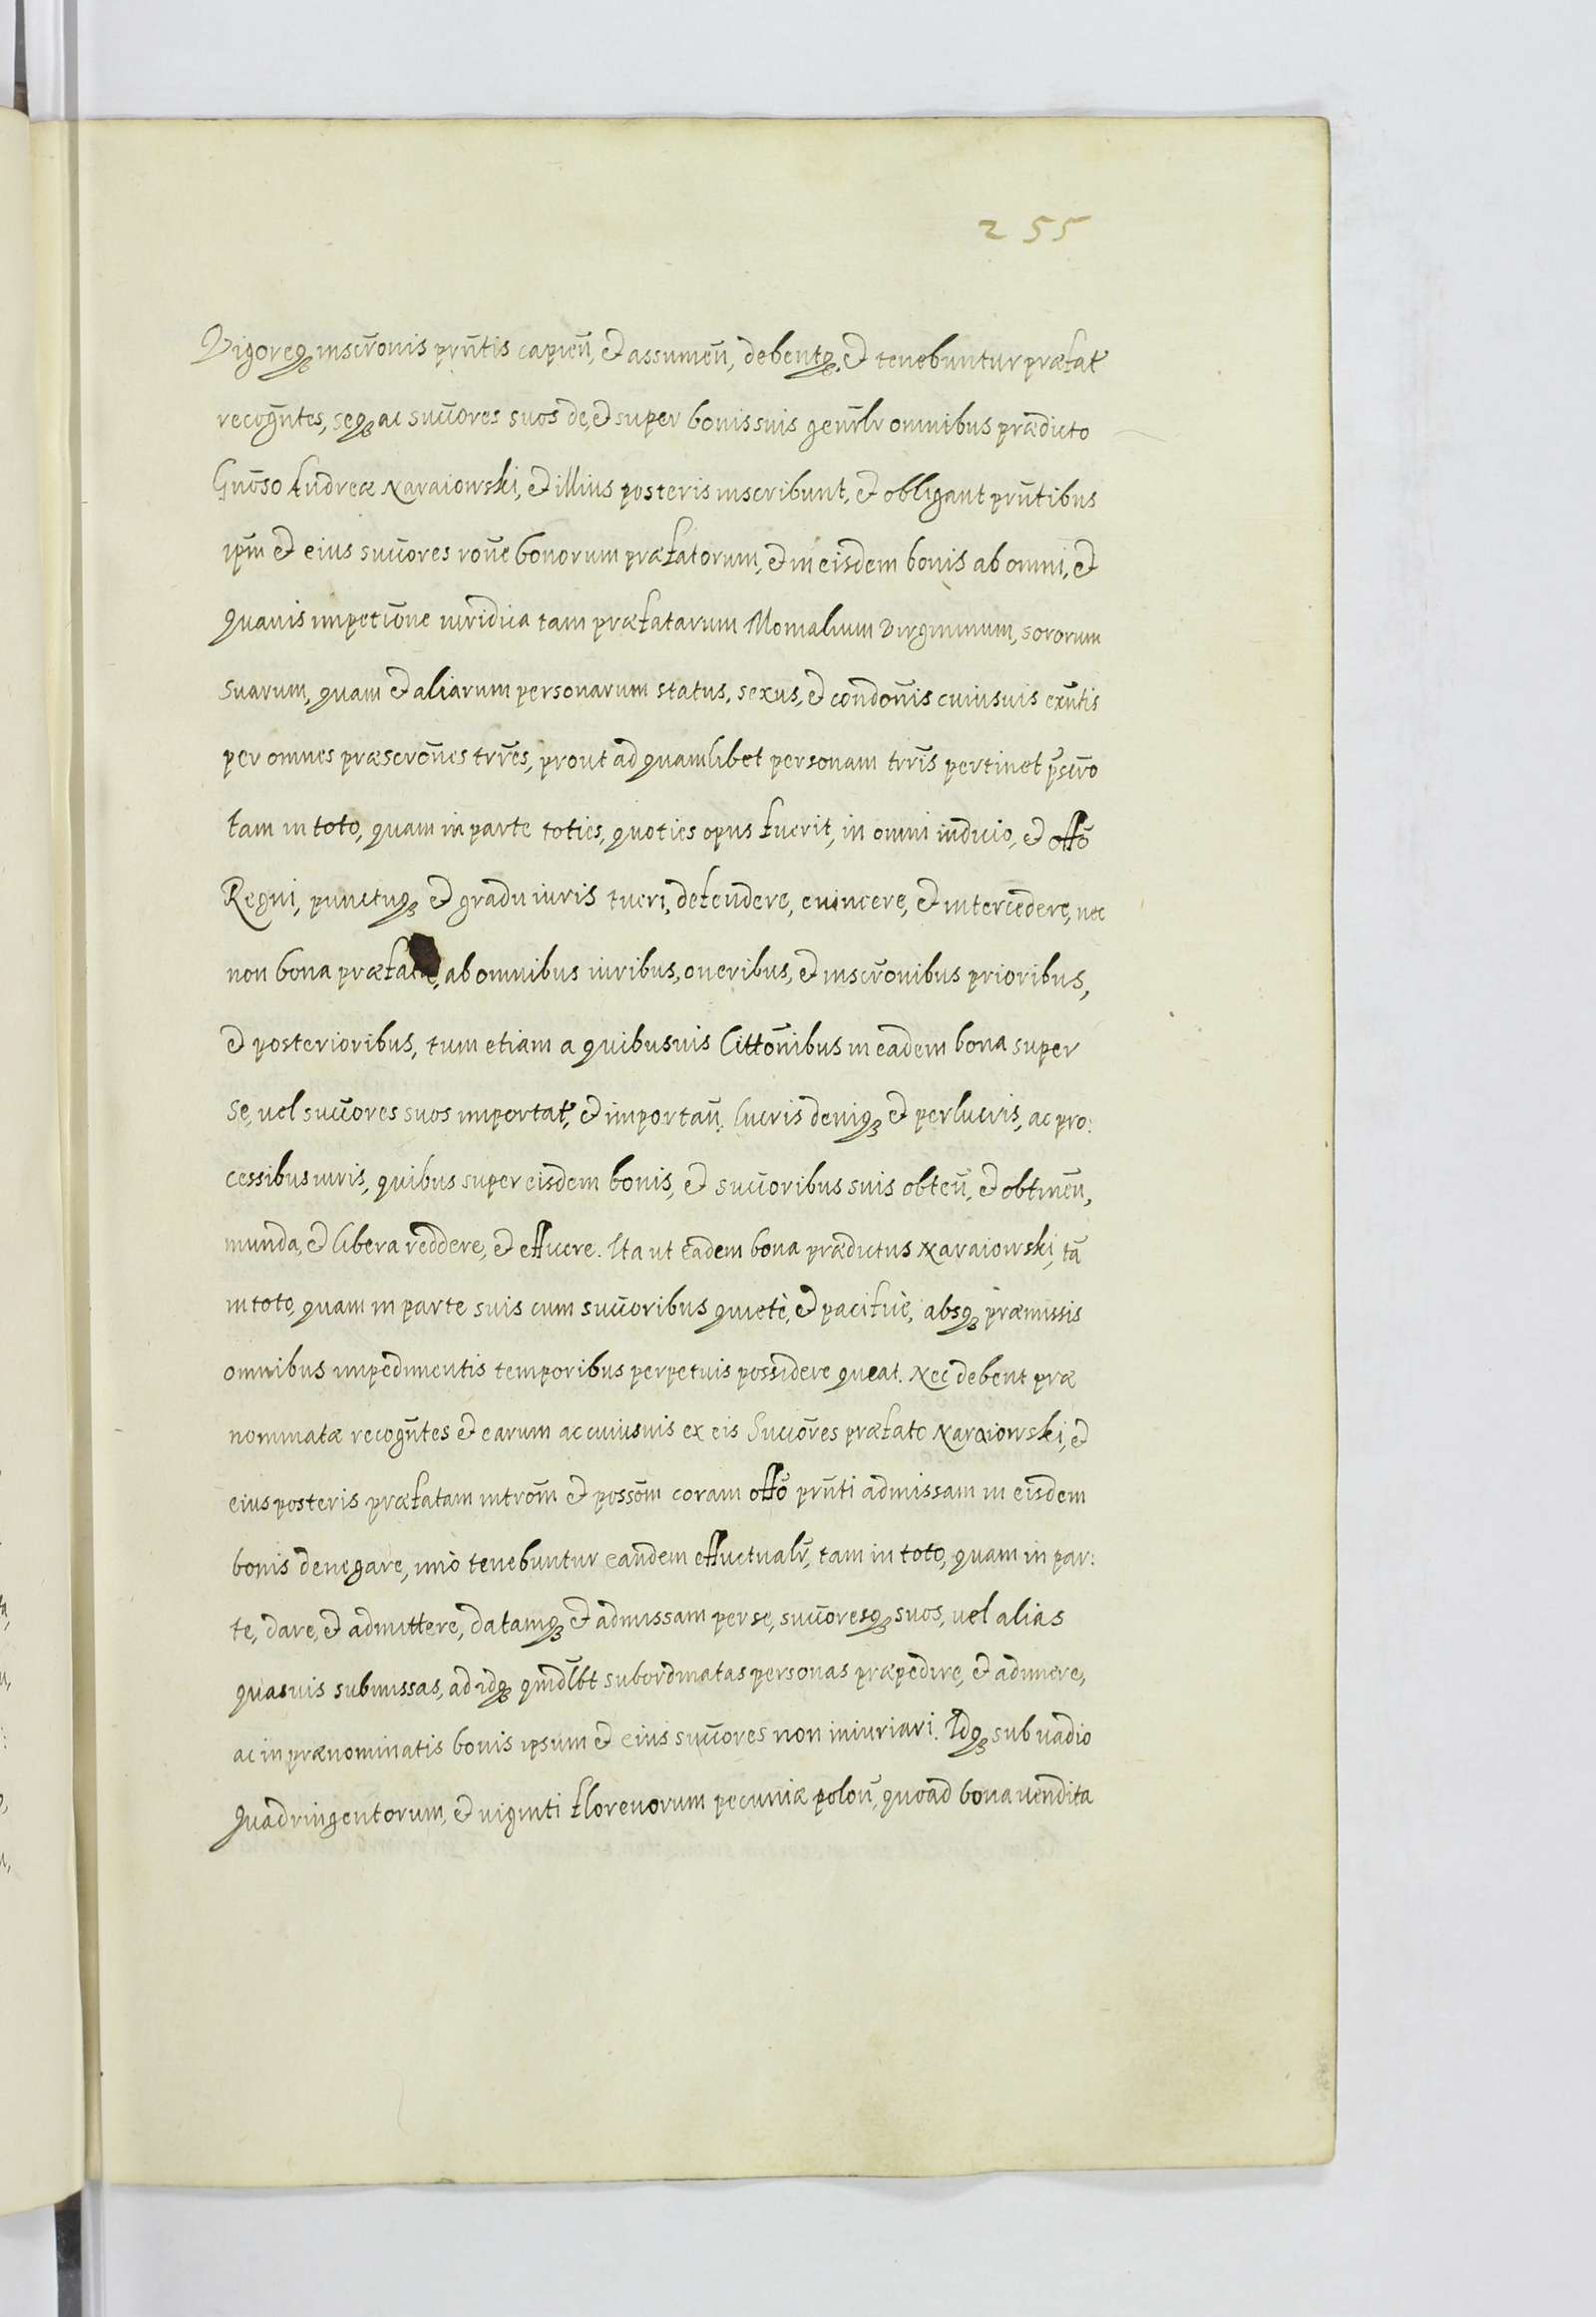 255
Vigoreq₃ inscr̄onis prn̄tis capien̄, et assumen̄, debentq₃, et tenebuntur præfat̄
recogn̄tes, seq₃ ac succ̄ores suos de, et super bonis suis gen̄rlr omnibus prædicto
Gnōso Andreæ Naraiowski, et illius posteris inscribunt, et obligant prn̄tibus
ipm̄ et eius succ̄ores rōne bonorum præfatorum, et in eisdem bonis ab omni, et
quauis impetiōne iuridica tam præfatarum Monialium Virginum, sororum
suarum, quam et aliarum personarum status, sexus, et condōnis cuiusuis exn̄tis
per omnes præscrōnes trr̄es, prout ad quamlibet personam trr̄is pertinet p̄scr̄o
tam in toto, quam in parte toties, quoties opus fuerit, in omni iudicio, et offō
Regni, punctuq₃ et gradu iuris tueri, defendere, euincere, et intercedere, nec
non bona præfata, ab omnibus iuribus, oneribus, et inscrōnibus prioribus,
et posterioribus, tum etiam a quibusuis Cittōnibus in eadem bona super
se, uel succ̄ores suos importat̄, et importan̄. lucris deniq₃ et perlucris, ac pro:
cessibus iuris, quibus super eisdem bonis, et succ̄oribus suis obten̄, et obtinen̄,
munda, et libera reddere, et efficere. Ita ut eadem bona prædictus Naraiowski, tā
in toto, quam in parte suis cum succ̄oribus quietè, et pacificè, absq₃ præmissis
omnibus impedimentis temporibus perpetuis possidere queat. Nec debent præ
nominatæ recogn̄tes et earum ac cuiusuis ex eis Succ̄ores præfato Naraiowski, et
eius posteris præfatam intrōm et possōm coram offō prn̄ti admissam in eisdem
bonis denegare, imò tenebuntur eandem effectualr̄, tam in toto, quam in par:
te, dare, et admittere, datamq₃ et admissam per se, succ̄oresq₃ suos, uel alias
quasuis submissas, ad idq₃ quidl̄bt subordinatas personas præpedire, et adimere,
ac in prænominatis bonis ipsum et eius succ̄ores non iniuriari. Idq₃ sub uadio
Quadringentorum, et uiginti florenorum pecuniæ polon̄, quoad bona uendita